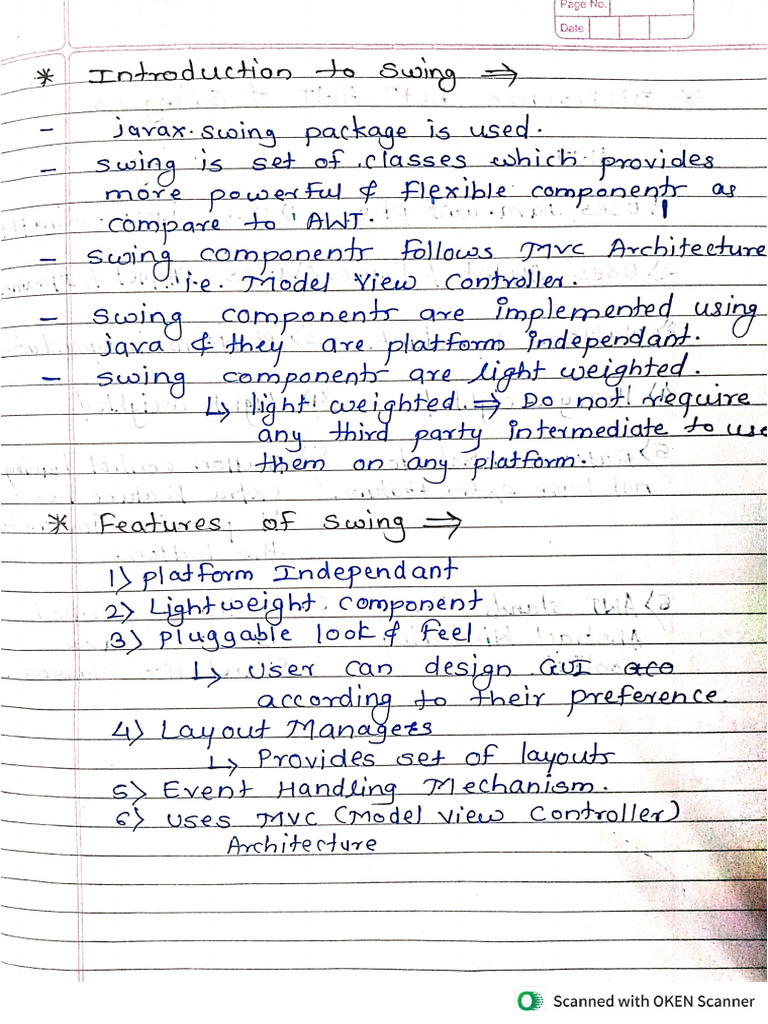 Page No.
Date
* Introduction to Swing ⇒
- javax.swing package is used.
- swing is set of classes which provides
more powerful & flexible components as
compare to AWT.
- swing components follows MVC Architecture
i.e. Model View Controller.
- swing components are implemented using
java & they are platform independant.
- swing components are light weighted.
↳ light weighted ⇒ Do not require
any third party intermediate to use
them on any platform.
* Features of swing ⇒
1) platform Independant
2) Lightweight component
3) pluggable look & feel
↳ user can design GUI aco
according to their preference.
4) Layout Managers
↳ Provides set of layouts
5) Event Handling Mechanism.
6) uses MVC (Model View Controller)
Architecture
Scanned with OKEN Scanner